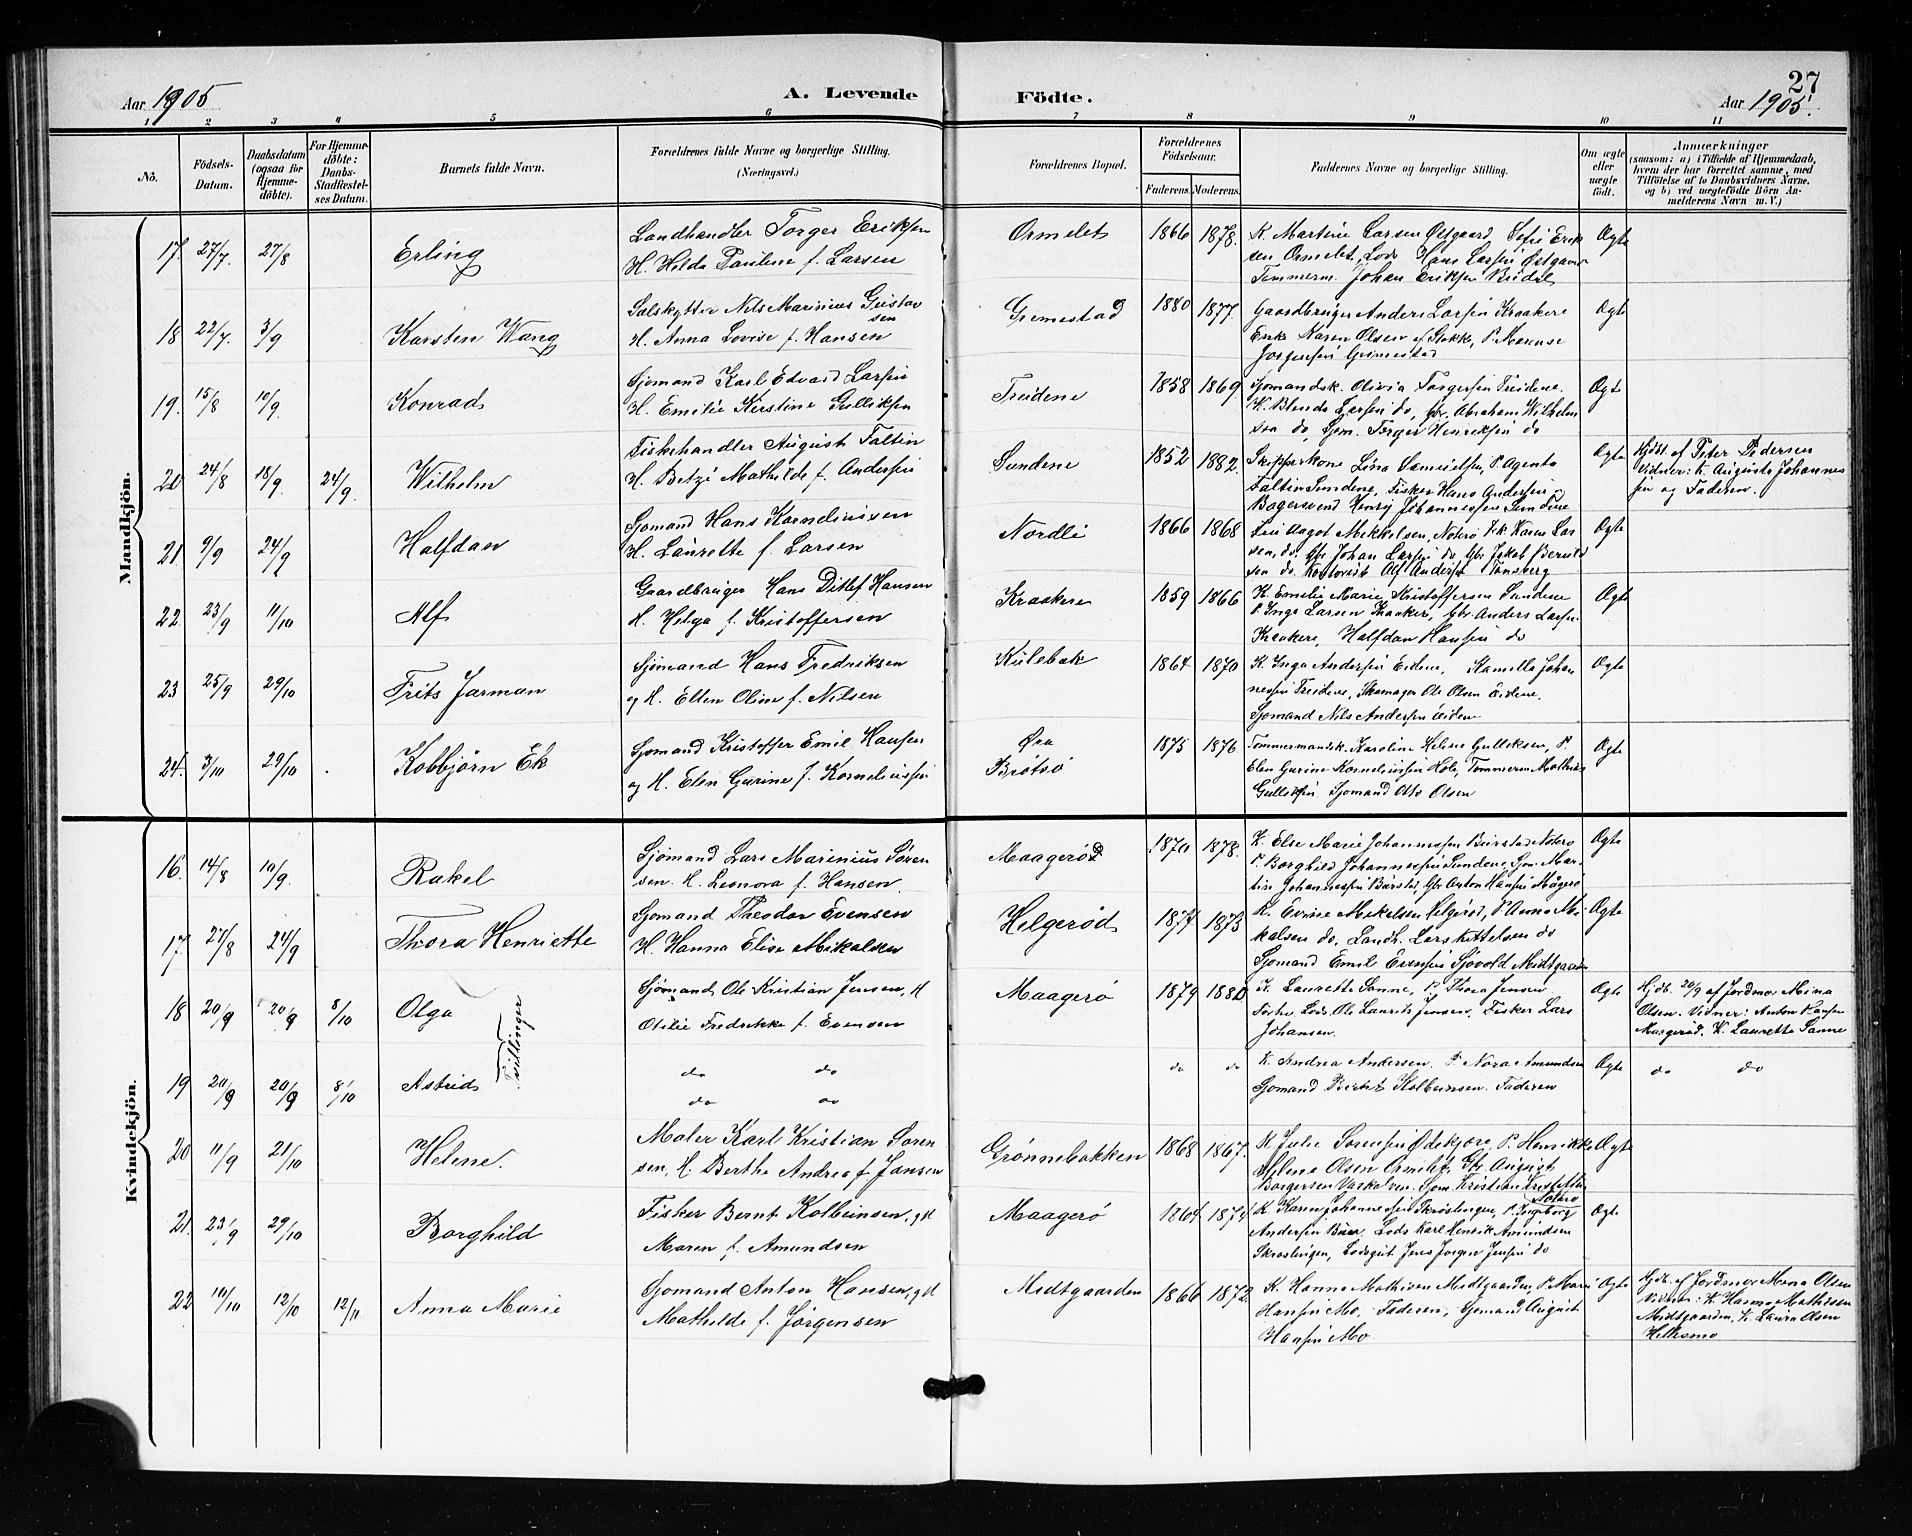 Aar 1905
A. Levende
Födte.
27
Aar 1905.
1 2 3 4 5 6 7 8 9 10 11
No.
Födsels-Datum.
Daabsdatum (ogsaa for Hjemmedøbte).
For Hjemmedøbte: Daabs-Stadfæstelses Datum.
Barnets fulde Navn.
Forældrenes fulde Navne og borgerlige Stilling.
(Næringsvei.)
Forældrenes Bopæl.
Forældrenes Födselsaar.
Faderens. Moderens.
Faddernes Navne og borgerlige Stilling.
Om ægte eller uægte födt.
Anmærkninger
(saasom: a) i Tilfælde af Hjemmedaab, hvem der har forrettet samme, med Tilföielse af to Daabsvidners Navne, og b) ved uægtefödte Börn Anmelderens Navn m. V.)
Mandkjön.
17. 27/7. 27/8 Erling
Landhandler Torger Eriksen
H. Hilda Pauline f. Larsen
Ormelet 1866 1878.
K. Martine Larsen Østgaard, Sofie Erik
sen Ormelet, Lods Hans Larsen Østgaard
Tømmerm. Johan Eriksen Budal
Ægte
18 22/7. 3/9 Karsten Wang
Sælskytter Nils Marinius Gustav
sen
H. Anna Lovise f. Hansen
Grimestad 1880 1877.
Gaardbruger Anders Larsen Kraakere
Enke Karen Olsen af Stokke, P. Marense
Jørgensen Grimestad
Ægte
19. 15/8 10/9. Konrad
Sjømand Karl Edvard Larsen
H. Emilie Kirstine Gulliksen
Treidene 1858 1869.
Sjomandsk. Olivia Torgersen Treidene,
K. Blenda Larsen do, Gbr. Abraham Wilhelm
sen do, Sjøm. Torger Henriksen do
Ægte
20 24/8 18/9. 24/9. Wilhelm
Fiskehandler August Faltin
H. Betzi Mathilde f. Andersen
Sundene 1852 1882.
Skipperkone Lina Samuelsen, P. Agenta
Faltin Sundene, Fisker Hans Andersen,
Bagersvend Henry Johannessen Sundene
Ægte
Hjdbt. af Peter Pedersen
Vidner: K. Augusta Johannes
sen og Faderen.
21 9/9 24/9 Halfdan
Sjomand Hans Korneliusen
H. Laurette f. Larsen
Nordli 1866 1868
Fru Aagot Mikkelsen, Noterø Pk. Karen Lar
sen, do. Gbr Johan Larsen do Gbr Jakob Bernts
sen do. Kontorist Alf Andersen Tønsberg
Ægte
22. 23/9 11/10 Alf
Gaardbruger Hans Ditlef Hansen
H. Helga f. Kristoffersen
Kraakere 1859 1866
K. Emelie Marie Kristoffersen Sundene
P. Inga Larsen Kraakere, Gbr. Anders Larsen
Kraakere, Halfdan Hansen do
Ægte
23 25/9 29/10 Frits Jarman
Sjømand Hans Fredriksen
og H. Ellen Oline f. Nilsen
Kulebak 1864 1870
K. Inga Andersen Eidene, Kamilla Johan
nessen Treidene, Skomager Ole Olsen Eidene,
Sjomand Nils Andersen Eidene
Ægte
24. 3/10 29/10 Kolbjørn Ek
Sjomand Kristoffer Emil Hansen
og H. Elen Gurine f. Korneliussen
Øra
Brøtsø 1875 1876
Tømmermandsk. Karoline Helene Gulliksen, P.
Elen Gurine Korneliussen Hole, Tømmerm Mathias
Gulliksen. Sjomand Otto Olsen
Ægte
Kvindekjön.
16. 14/8 10/9. Rakel
Sjomand Lars Marinius Søren
sen. H. Leonora f. Hansen.
Maagerø 1870 1878.
K. Else Marie Johannessen Burstad Nøterø
P. Borghild Johannessen Sundene, Sjm. Mar-
tin Johannessen Burstad, Gbr Anton Hansen Mågerø
Ægte
17. 27/8 24/9 Thora Henriette
Sjomand Theodor Evensen
H. Hanna Elise Mikalsen
Helgerød 1874 1873
K. Evine Mikalsen Helgerød, P. Anna Mi-
kalsen do, Landh. Lars Kittelsen do
Sjomand Emil Evensen Sjøvold Midtgaarden
Ægte
18 20/9 20/9 8/10 Olga
Tvillinger
Sjømand Ole Kristian Jensen, H
Otilie Fredrikke f. Evensen
Maagerø 1879 1880
K. Laurette Sanne, P. Thora Jensen
Lods Ole Laurits Jensen, Fisker Lars
Johansen.
Ægte
Hjdb. 20/9 af Jordmor Mina
Olsen. Vidner: Anton Hansen
Maagerød. K. Laurette Sanne
19 20/9 20/9 8/10 Astrid
do do
do do
do do
K. Andrea Andersen. P. Nora Amundsen
Sjomand Berket Kolbeinsen. Faderen
Ægte do do
20 11/9 21/10 Helene.
Maler Karl Kristian Søren
sen, H. Berthe Andrea f. Jansen
Grønnebakken 1868 1867.
K. Julie Sørensen Ødekjære, P. Henrikke
Helene Olsen Ormelet, Gbr. August
Borgersen Vaskalven. Sjøm. Kristian Kristoffersen
Ægte
21. 23/9 29/10 Borghild
Fisker Bernt Kolbeinsen, gd
Maren f. Amundsen
Maagerø 1864 1874
Nøterø
K. Karen Johannessen Skrøslingen, P. Ingeborg
Andersen Buer, Lods Karl Henrik Amundsen
Skrøslingen, Lodsgut Jens Jørgen Jensen do
Ægte
22 10/10 12/10 12/11 Anna Marie
Sjomand Anton Hansen, gd
Mathilde f. Jørgensen
Midtgaarden 1866 1872
K. Hanna Mathisen Midtgaarden, P. Marie
Hansen Mo, Faderen, Sjomand August
Hansen Mo.
Ægte
Hjdb. af Jordmor Mina Olsen
Vidner: K. Hanna Mathisen
Midtgaarden, K. Laura Olsen
Hellesmo